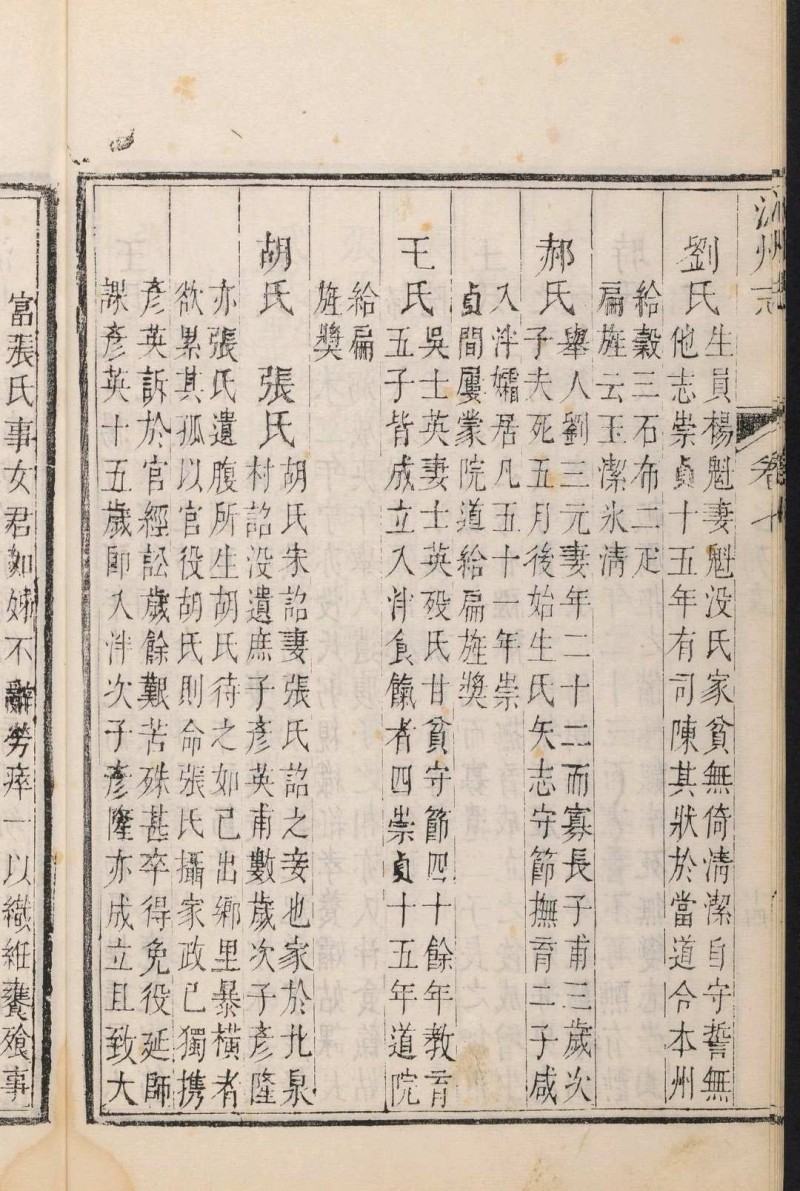 沁州志 卷
劉氏
生員楊魁妻魁没氏家貧無倚清潔自守誓無
他志崇貞十五年有司陳其狀於當道令本州
給穀三石布二疋
扁旌云玉潔氷清
郝氏
舉人劉三元妻年二十二而寡長子甫三歲次
子夫死五月後始生氏矢志守節撫育二子咸
入泮孀居凡五十一年崇
貞間屢蒙院道給扁旌獎
王氏
吳士英妻士英殁氏甘貧守節四十餘年教育
五子皆成立入泮食餼者四崇貞十五年道院
給扁
旌獎
胡氏 張氏
胡氏宋詔妻張氏詔之妾也家於北泉
村詔没遺庶子彥英甫數歲次子彥隆
亦張氏遺腹所生胡氏待之如己出鄉里暴橫者
欲累其孤以官役胡氏則命張氏攝家政己獨携
彥英訴於官經訟歲餘艱苦殊甚卒得免役延師
課彥英十五歲即入泮次子彥隆亦成立且致大
富張氏事女君如姊不辭勞瘁一以織紝饔飱事